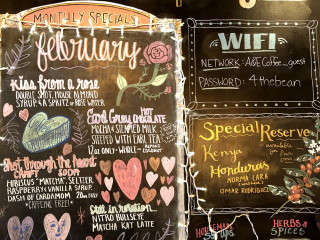 MONTHLY SPECIALS
february
Kiss from a rose
DOUBLE SHOT, HOUSE ALMOND
SYRUP, 4A SPRITZ OF ROSE WATER
HOT
Earl Grey CHOCOLATE
MOCHA & STEAMED MILK
STEEPED WITH EARL TEA
12oz ONLY - WHOLE
Shot through the heart
CRAFT SODA
HIBISCUS "MATCHA", SELTZER
RASPBERRY & VANILLA SYRUP
DASH OF CARDAMOM 20oz ONLY
*CAFFEINE FREE*
Still in rotation
NITRO BULLSEYE
MATCHA KAT LATTE
WIFI
NETWORK: A&E Coffee_guest
PASSWORD: 4thebean
Special Reserve
Kenya
available
Honduras
NORMA LARA
OMAR RODRIGUEZ
HOUSEMADE
SYRUPS
HERBS
SPICES